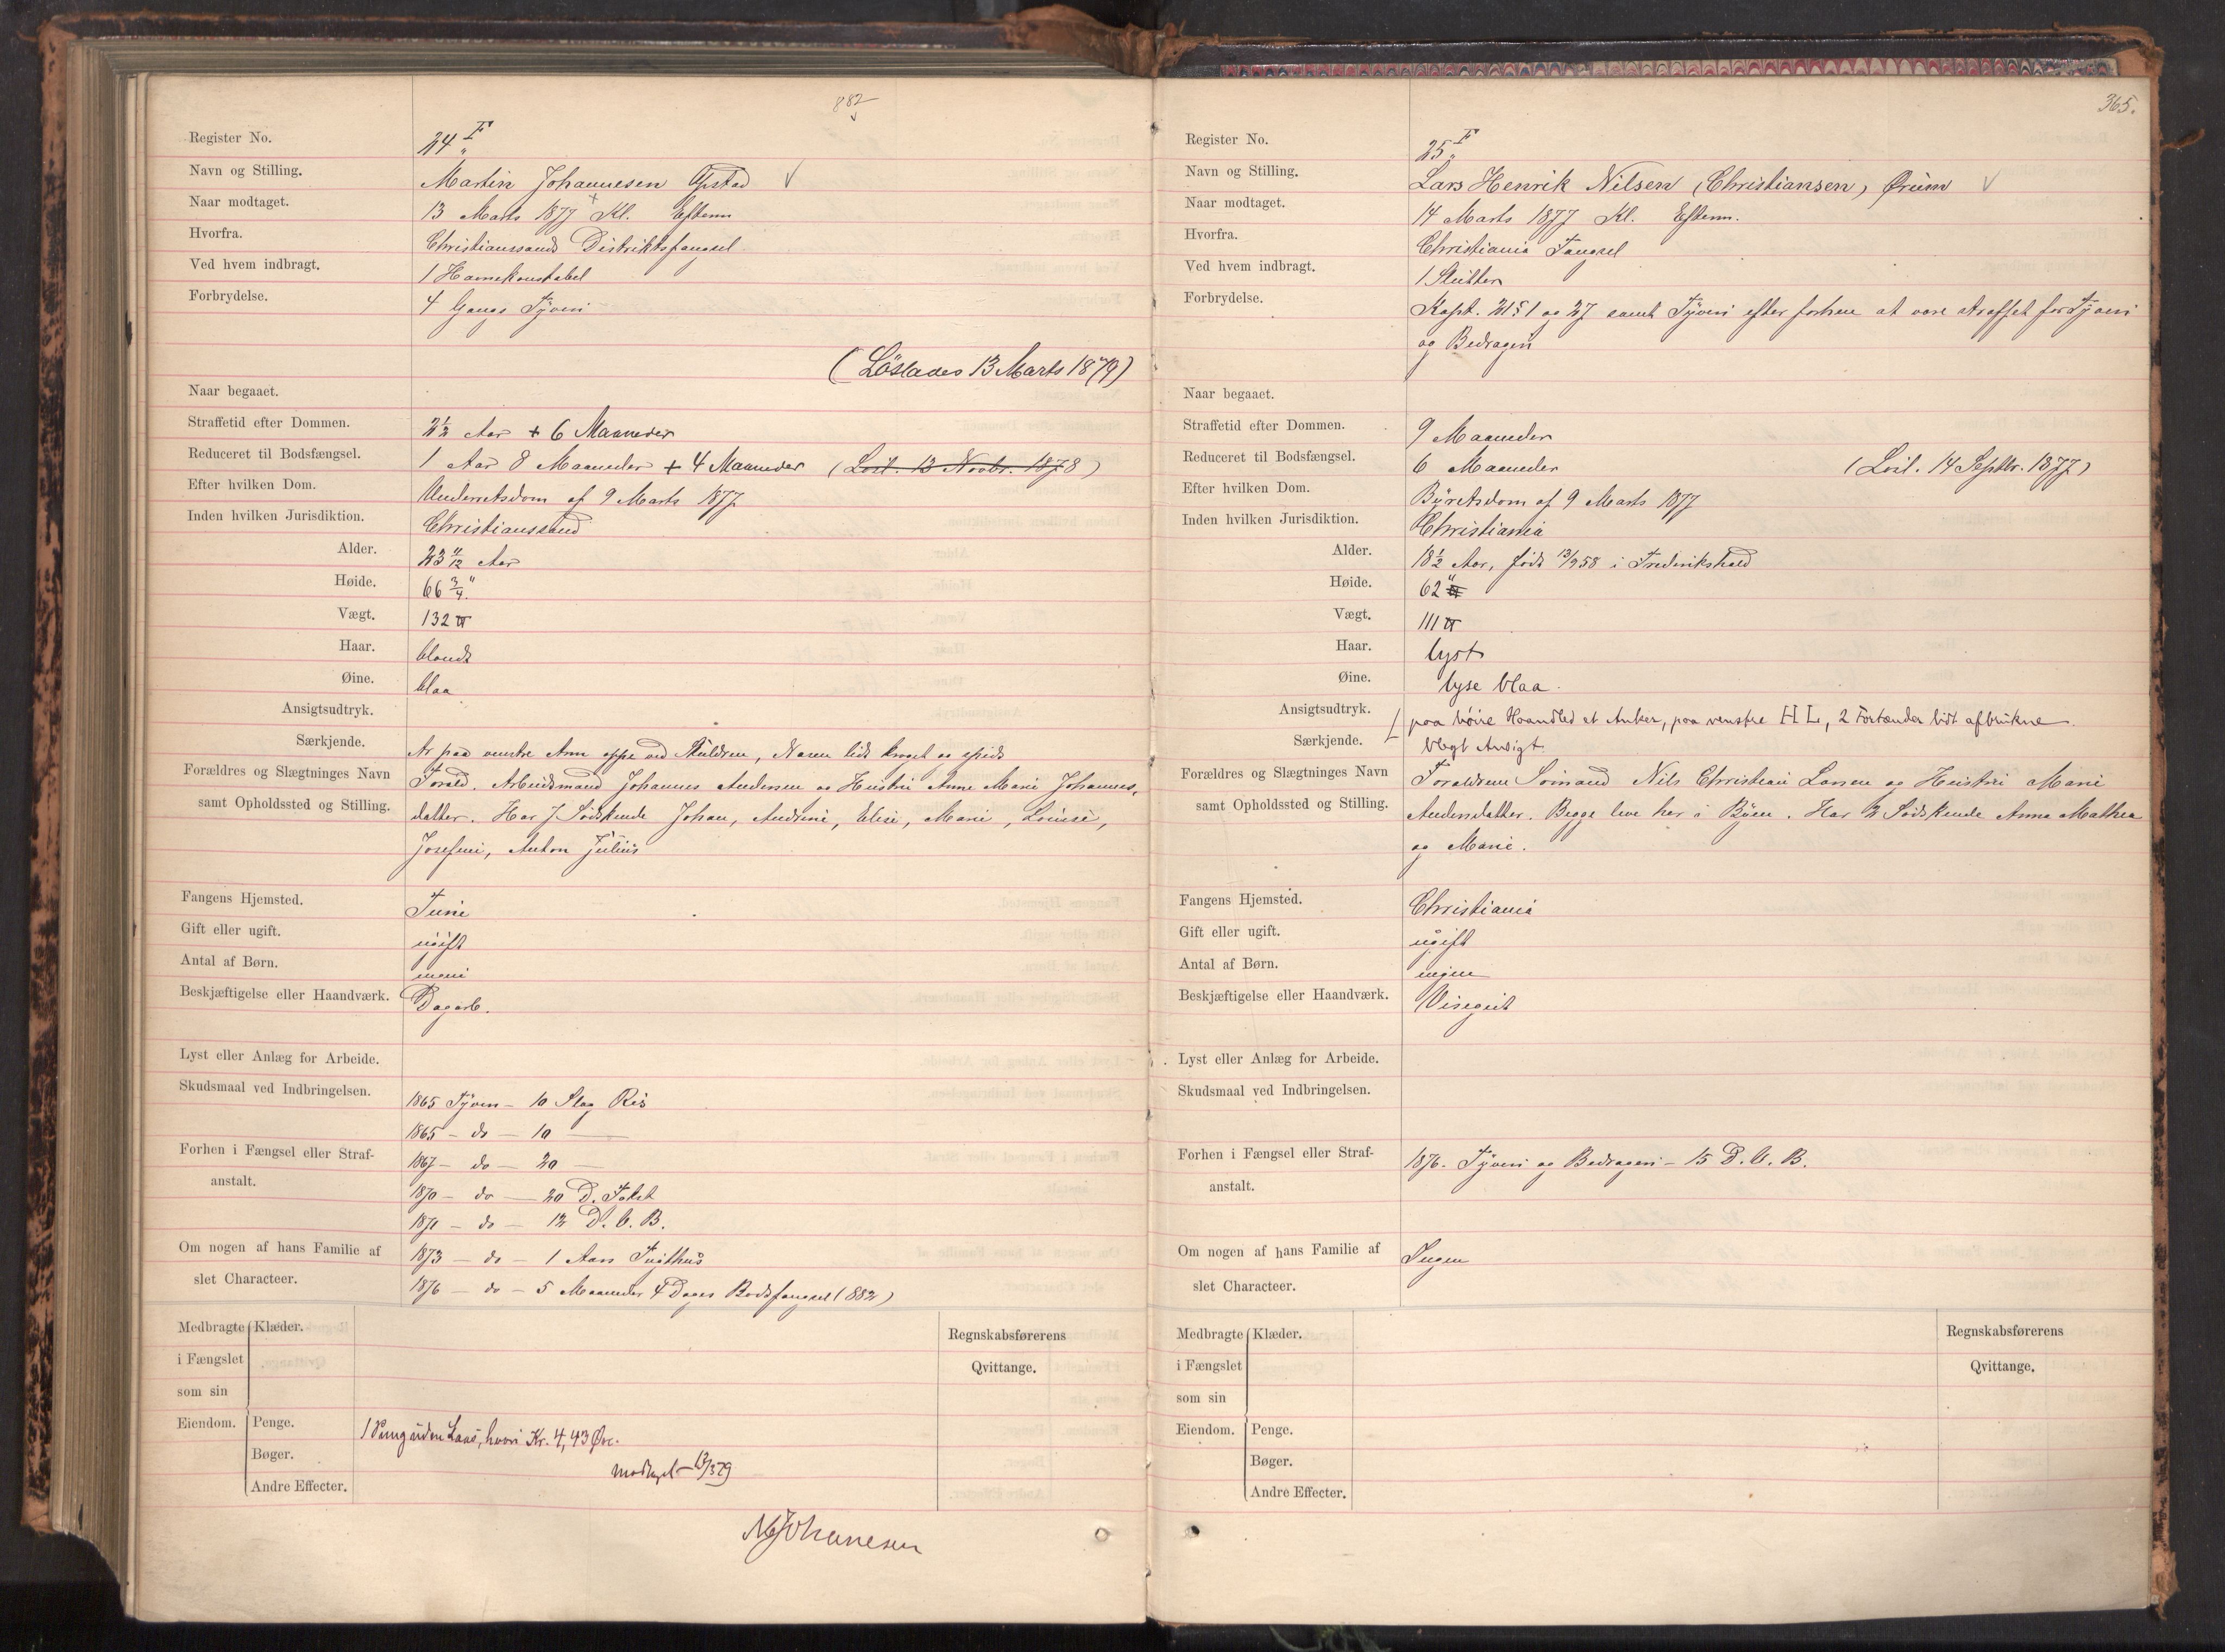 882
Register No. 24 F
Navn og Stilling. Martin Johannesen Opstad
Naar modtaget. 13 Marts 1877 Kl. Efterm
Hvorfra. Christianssands Distriktsfængsel
Ved hvem indbragt. 1 Havnekonstabel
Forbrydelse. 4 Gangs Tyveri
(Löslades 13 Marts 1879)
Naar begaaet.
Straffetid efter Dommen. 2½ Aar + 6 Maaneder
Reduceret til Bodsfængsel. 1 Aar 8 Maaneder + 4 Maaneder (Losl. 13 Novbr. 1878)
Efter hvilken Dom. Underretsdom af 9 Marts 1877
Inden hvilken Jurisdiktion. Christianssand
Alder. 23 11/12 Aar
Høide. 66 3/4"
Vægt. 132 ℔
Haar. blondt
Øine. blaa
Ansigtsudtryk.
Særkjende. Ar paa venstre Arm oppe ved Skuldren, Næsen lidt kroget og spids
Forældres og Slægtninges Navn Foræld. Arbeidsmand Johannes Andersen og Hustru Anne Marie Johannes-
samt Opholdssted og Stilling. datter. Har 7 Sødskende Johan, Andrine, Elise, Marie, Louise,
Josefine, Anton Julius
Fangens Hjemsted. Tveit
Gift eller ugift. ugift
Antal af Børn. ingen
Beskjæftigelse eller Haandværk. Dagarb.
Lyst eller Anlæg for Arbeide.
Skudsmaal ved Indbringelsen. 1865 Tyveri - 10 Slag Ris
1865 - do - 10 —
Forhen i Fængsel eller Straf- 1867 - do - 20 —
anstalt. 1870 - do - 20 D. Fslst
1871 - do - 12 D. V. B.
Om nogen af hans Familie af 1873 - do - 1 Aars Tugthus
slet Characteer. 1876 - do - 5 Maaneder 4 Dages Bodsfængsel (882)
Medbragte Klæder. Regnskabsførerens
i Fængslet Qvittange.
som sin
Eiendom. Penge. 1 Pung uden Laas, hvori Kr. 4,43 Øre.
Bøger. modtaget 13/3 79
Andre Effecter.
MJohanesen
365.
Register No. 25 F
Navn og Stilling. Lars Henrik Nilsen (Christiansen) Ørum
Naar modtaget. 14 Marts 1877 Kl. Efterm.
Hvorfra. Christiania Fængsel
Ved hvem indbragt. 1 Slutter
Forbrydelse. Kapt. 21 § 1 og 27 samt Tyveri efter forhen at være straffet for Tyveri
og Bedrageri
Naar begaaet.
Straffetid efter Dommen. 9 Maaneder
Reduceret til Bodsfængsel. 6 Maaneder (Losl. 14 Septbr. 1877)
Efter hvilken Dom. Byretsdom af 9 Marts 1877
Inden hvilken Jurisdiktion. Christiania
Alder. 18½ Aar, født 13/9 58 i Fredrikshald
Høide. 62"
Vægt. 111 ℔
Haar. lyst
Øine. lyse blaa
Ansigtsudtryk. paa høire Haandled et Anker, paa venstre H L, 2 Fortænder lidt afbrukne.
Særkjende. blegt Ansigt
Forældres og Slægtninges Navn Forældrene Sømand Nils Christian Larsen og Hustru Marie
samt Opholdssted og Stilling. Andersdatter. Begge leve her i Byen. Har 2 Sødskende Anna Mathea
og Marie.
Fangens Hjemsted. Christiania
Gift eller ugift. ugift
Antal af Børn. ingen
Beskjæftigelse eller Haandværk. Visergut
Lyst eller Anlæg for Arbeide.
Skudsmaal ved Indbringelsen.
Forhen i Fængsel eller Straf- 1876. Tyveri og Bedrageri - 15 D. V. B.
anstalt.
Om nogen af hans Familie af Ingen
slet Characteer.
Medbragte Klæder. Regnskabsførerens
i Fængslet Qvittange.
som sin
Eiendom. Penge.
Bøger.
Andre Effecter.